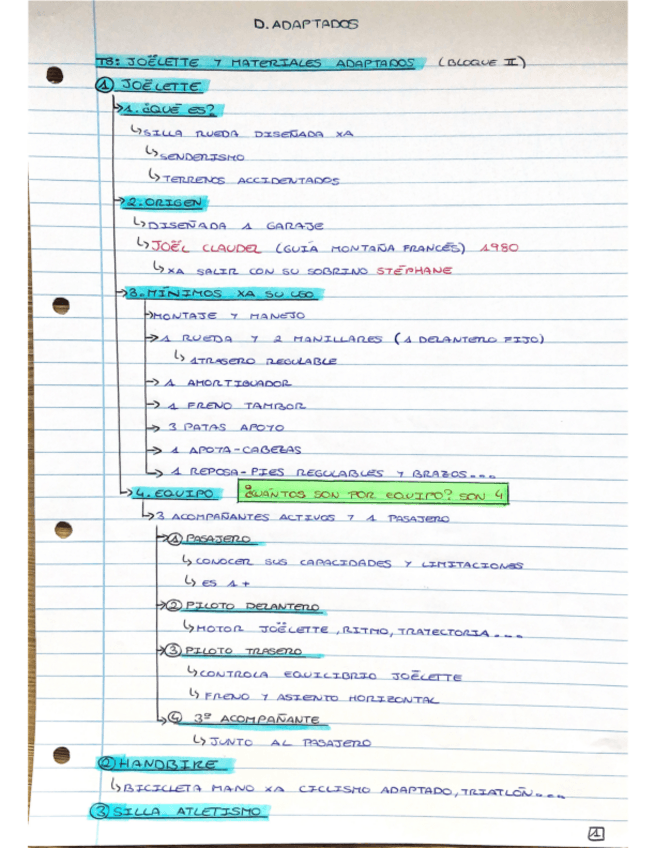 D. ADAPTADOS
T8: JOËLETTE Y MATERIALES ADAPTADOS (BLOQUE II)
① JOËLETTE
→1. ¿QUÉ ES?
↳SILLA RUEDA DISEÑADA XA
↳SENDERISMO
↳TERRENOS ACCIDENTADOS
→2. ORIGEN
↳DISEÑADA 1 GARAJE
↳JOËL CLAUDEL (GUÍA MONTAÑA FRANCÉS) 1980
↳XA SALIR CON SU SOBRINO STÉPHANE
→3. MÍNIMOS XA SU USO
→MONTAJE Y MANEJO
→1 RUEDA Y 2 MANILLARES (1 DELANTERO FIJO)
↳1 TRASERO REGULABLE
→1 AMORTIGUADOR
→1 FRENO TAMBOR
→3 PATAS APOYO
→1 APOYA-CABEZAS
→1 REPOSA-PIES REGULABLES Y BRAZOS...
→4. EQUIPO ¿CUÁNTOS SON POR EQUIPO? SON 4
↳3 ACOMPAÑANTES ACTIVOS Y 1 PASAJERO
→① PASAJERO
↳CONOCER SUS CAPACIDADES Y LIMITACIONES
↳ES 1 +
→② PILOTO DELANTERO
↳MOTOR JOËLETTE, RITMO, TRAYECTORIA...
→③ PILOTO TRASERO
↳CONTROLA EQUILIBRIO JOËLETTE
↳FRENO Y ASIENTO HORIZONTAL
→④ 3º ACOMPAÑANTE
↳JUNTO AL PASAJERO
② HANDBIKE
↳BICICLETA MANO XA CICLISMO ADAPTADO, TRIATLÓN...
③ SILLA ATLETISMO
1